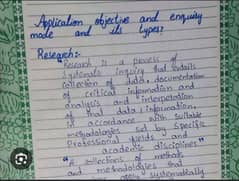 Application objective and enquiry
mode and its types:
Research:-
"Research is a process of
systematic inquiry that entails
collection of data, documentation
of critical information and
analysis and interpretation
of that data, information,
in accordance with suitable
methodologies set by specific
Professional fields and
academic disciplines"
"A collections of methods
and methodologies that
apply systematically